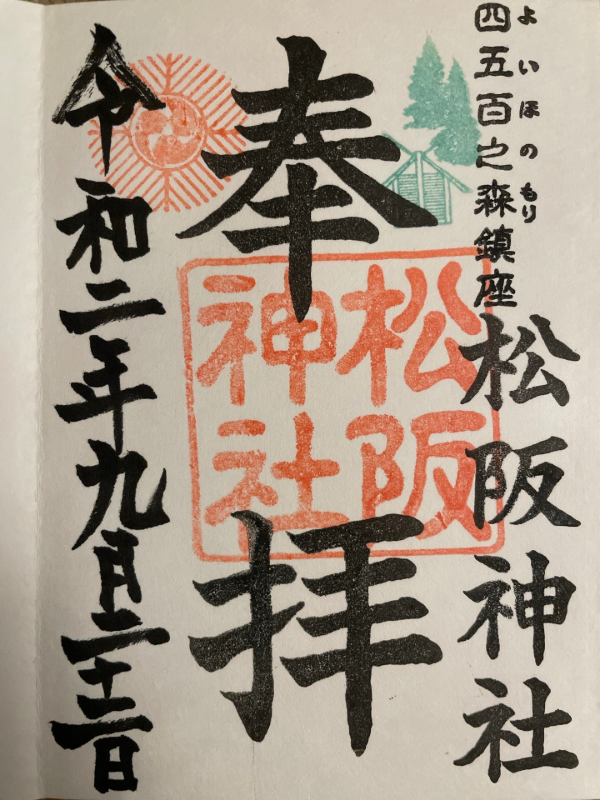 よいほのもり
四五百之森鎮座
松阪神社
奉拝
松阪
神社
令和二年九月二十二日